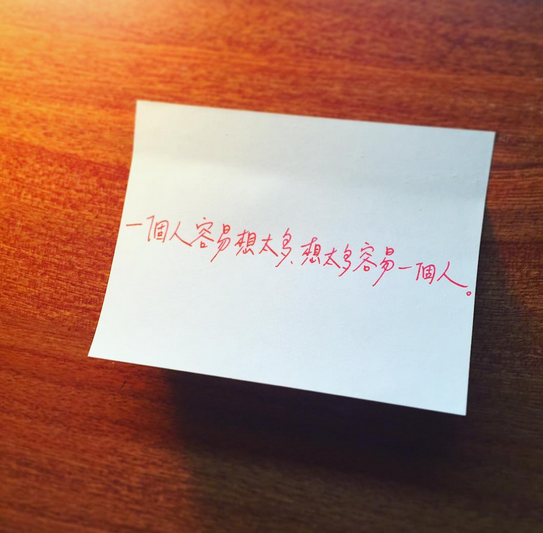 一個人容易想太多、想太多容易一個人。